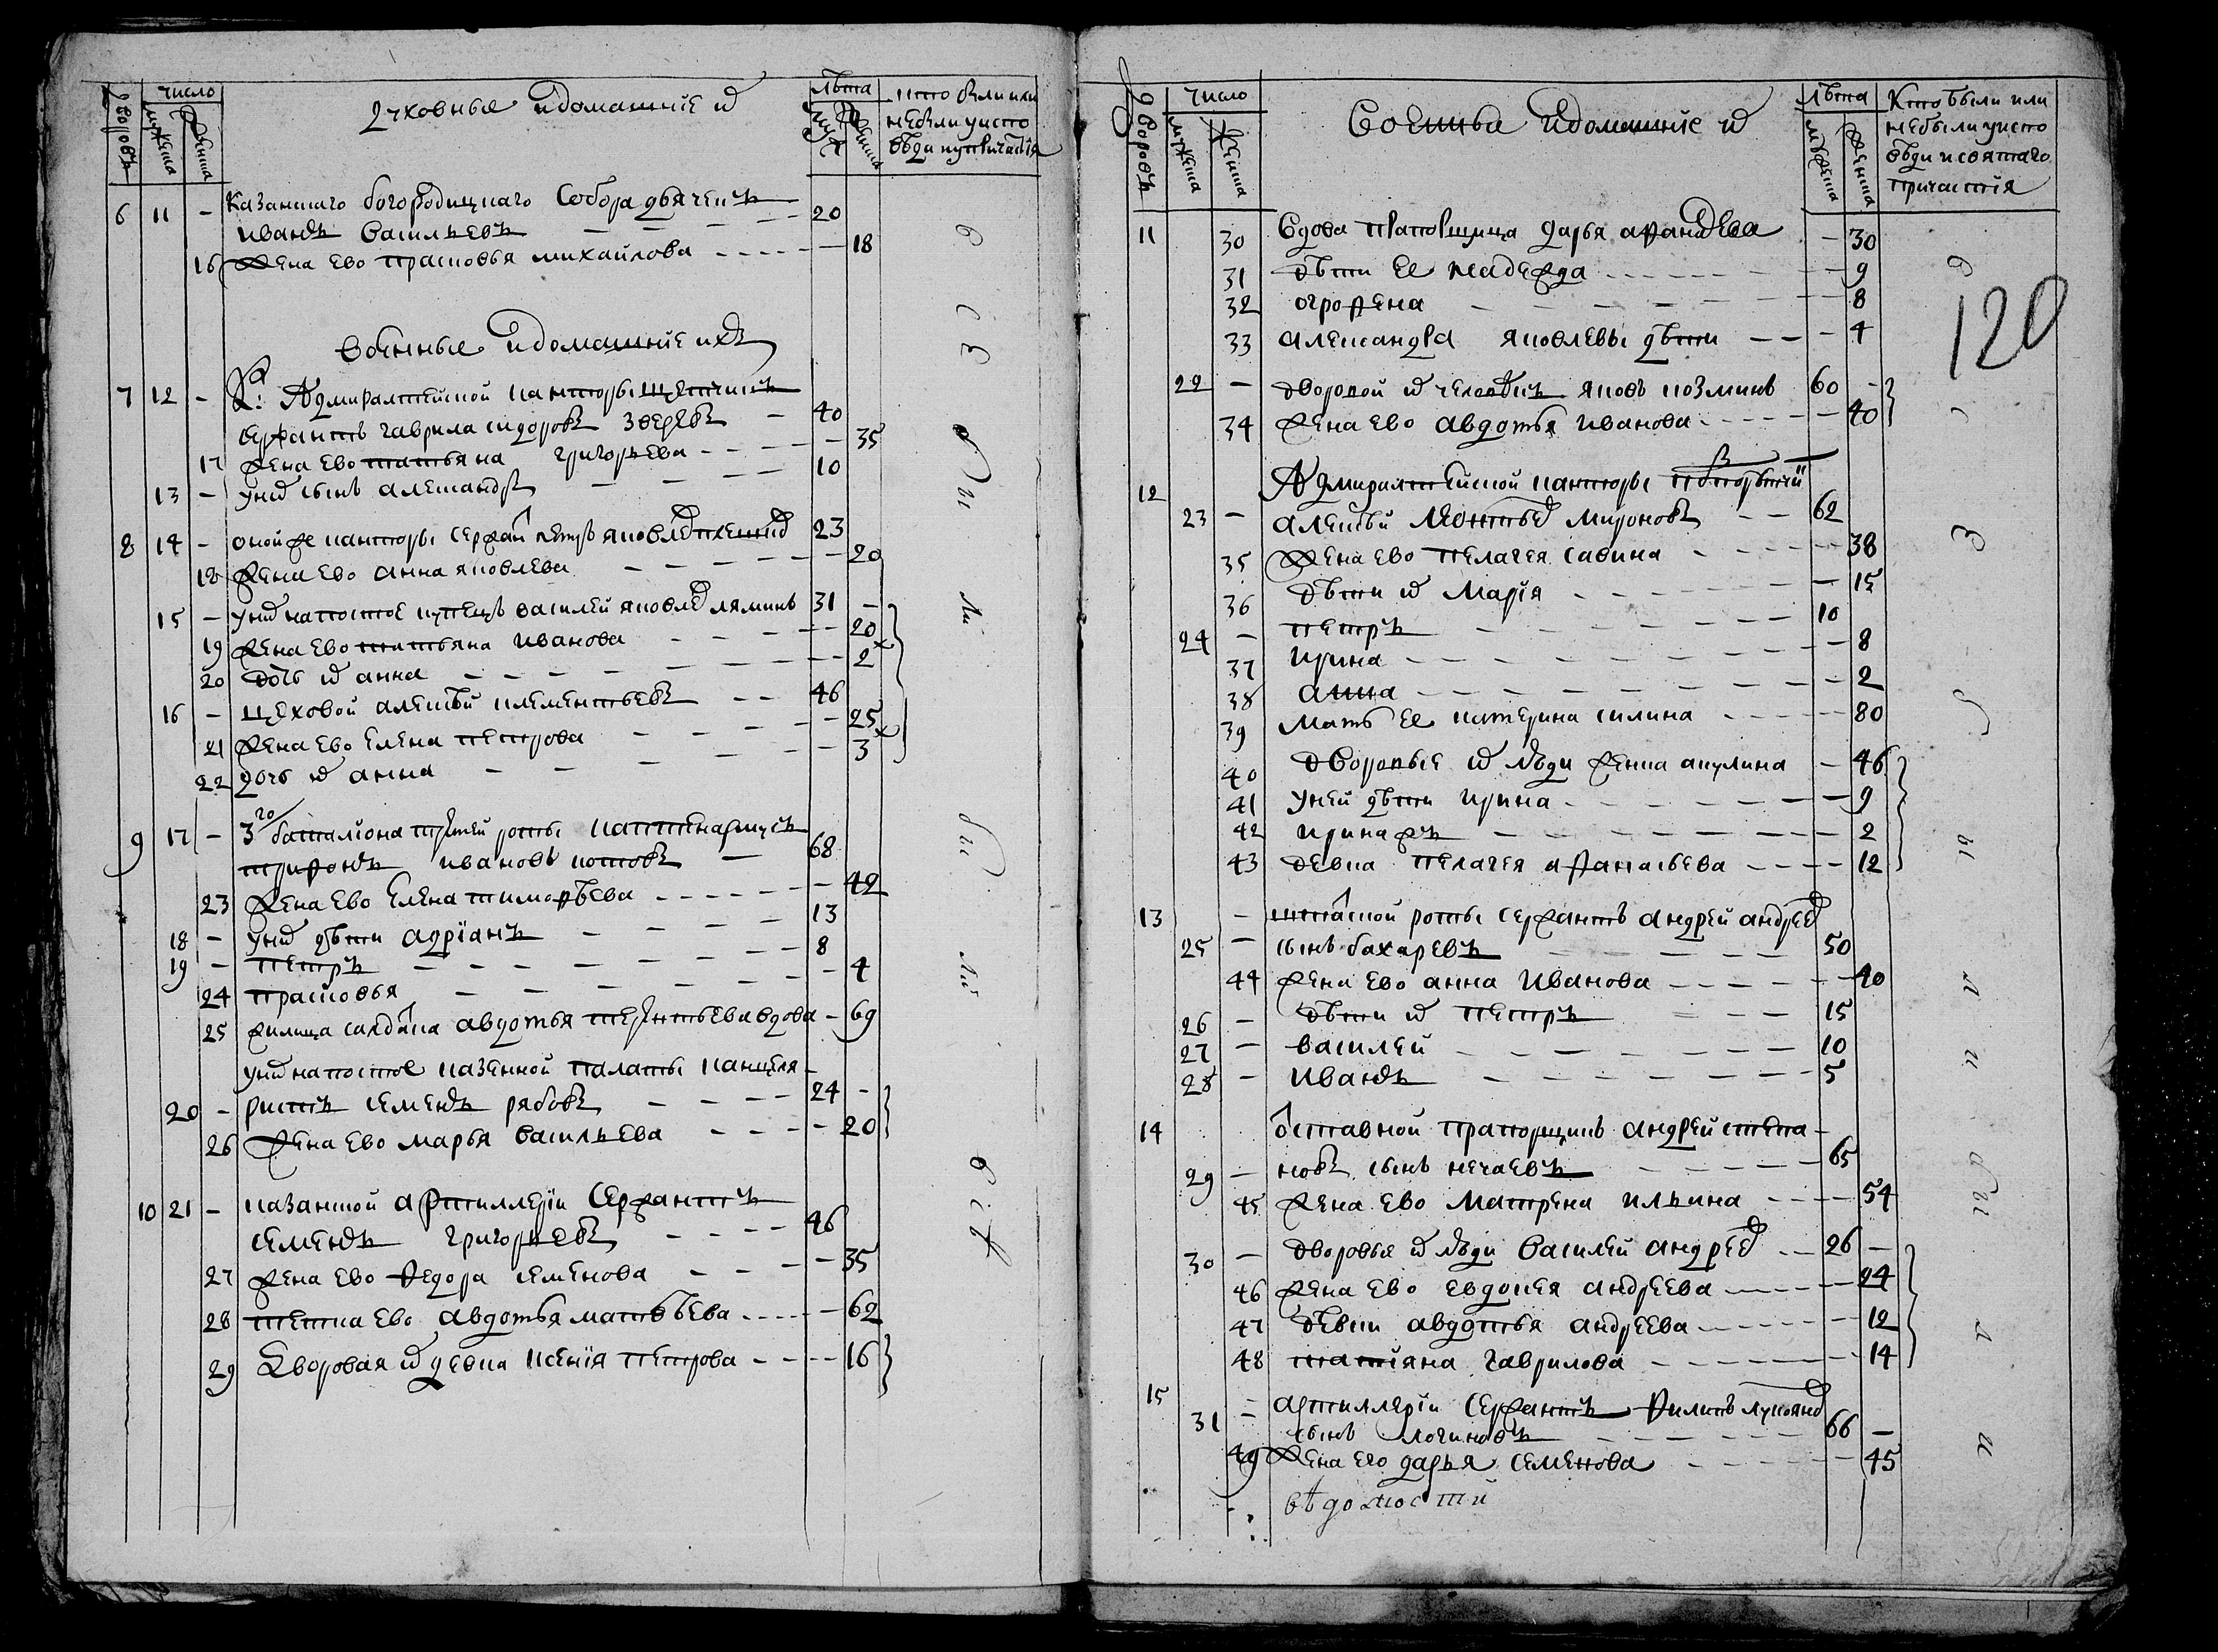 дворовъ
число
мужеска
женска
Духовные и домашніе их
лѣта
муж
женска
кто были или
небыли уиспо
вѣди иупричастія
6 11 – казанскаго богородицкаго Собора дьячекъ
Иванъ Васильевъ – – – 20
16 жена ево прасковья михайлова – – – – 18
военные и домашніе ихъ
7 12 – Адмиралтейской канторы
сержантъ гаврила сидоровъ зверевъ – 40
17 жена ево татьяна григорьева – – – – 35
13 – у них сынъ александръ – – – 10
8 14 – оной же канторы сержан петръ яковлев 23
18 жена ево анна яковлева – – – – – 20
15 – у них на постое купецъ василей яковлев ляминъ 31 –
19 жена ево татьяна иванова – – – – 20
20 дочь их анна – – – – – – 2
16 – цеховой алексѣй клементьевъ – – 46
21 жена ево елена петрова – – – – – 25
22 дочь их анна – – – – – – 3
9 17 – 3го баталіона третей роты каптенармусъ
трифонъ ивановъ котовъ – 68
23 жена ево елена тимофѣева – – – – – 42
18 – у них дѣти адріанъ – – – – 13
19 – петръ – – – – – – 8
24 прасковья – – – – – – 4
25 жилица салдатка авдотья терентьева вдова – 69
у них на постое казенной палаты канцеля–
20 – ристъ семенъ рябовъ – – – – 24 –
26 жена ево марья васильева – – – – 20
10 21 – казанской артиллеріи сержантъ
семенъ григорьевъ – – – 46
27 жена ево федора семенова – – – – 35
28 тетка ево авдотья матвѣева – – – – 62
29 Дворовая их девка ксенія петрова – – – – 16
дворовъ
число
мужеска
женска
военные и домашніе их
лѣта
мужеска
женска
Кто были или
небыли уиспо
вѣди и святаго
причастія
120
11 30 вдова прапорщица дарья афанасьева – 30
31 дѣти ее надежда – – – – – – 9
32 огрофена – – – – – – 8
33 александра яковлевы дѣти – – – 4
22 – дворовой их человѣкъ яковъ козминъ 60 –
34 жена ево авдотья иванова – – – – – 40
12 Адмиралтейской канторы
23 – алексѣй леонтьев мироновъ – – 62
35 жена ево пелагея савина – – – – 38
36 дѣти их марія – – – – – 15
24 – петръ – – – – – – 10
37 ирина – – – – – – – – 8
38 анна – – – – – – – – 2
39 мать ее катерина силина – – – – 80
40 дворовые их люди женка акулина – 46
41 у ней дѣти ирина – – – – – – 9
42 иринархъ – – – – – – 2
43 девка пелагея афанасьева – – – – 12
13 – штатской роты сержантъ андрей андреев
25 – сынъ бахаревъ – – – – – 50
44 жена ево анна иванова – – – – – 40
26 – дѣти их петръ – – – 15
27 – василей – – – – – – 10
28 – иванъ – – – – – – 5
14 отставной прапорщикъ андрей степа–
29 – новъ сынъ нечаевъ – – – – – 65
45 жена ево матрена ильина – – – – 54
30 – дворовыя их люди василей андреев – – 26 –
46 жена ево евдокея андреева – – – – 24
47 девки авдотья андреева – – – – – 12
48 татіяна гаврилова – – – – – – 14
15 31 – артиллеріи сержантъ филипъ лукоянов
сынъ логиновъ – – – – – 66 –
49 жена его дарья семенова – – – – – 45
вѣдомостй